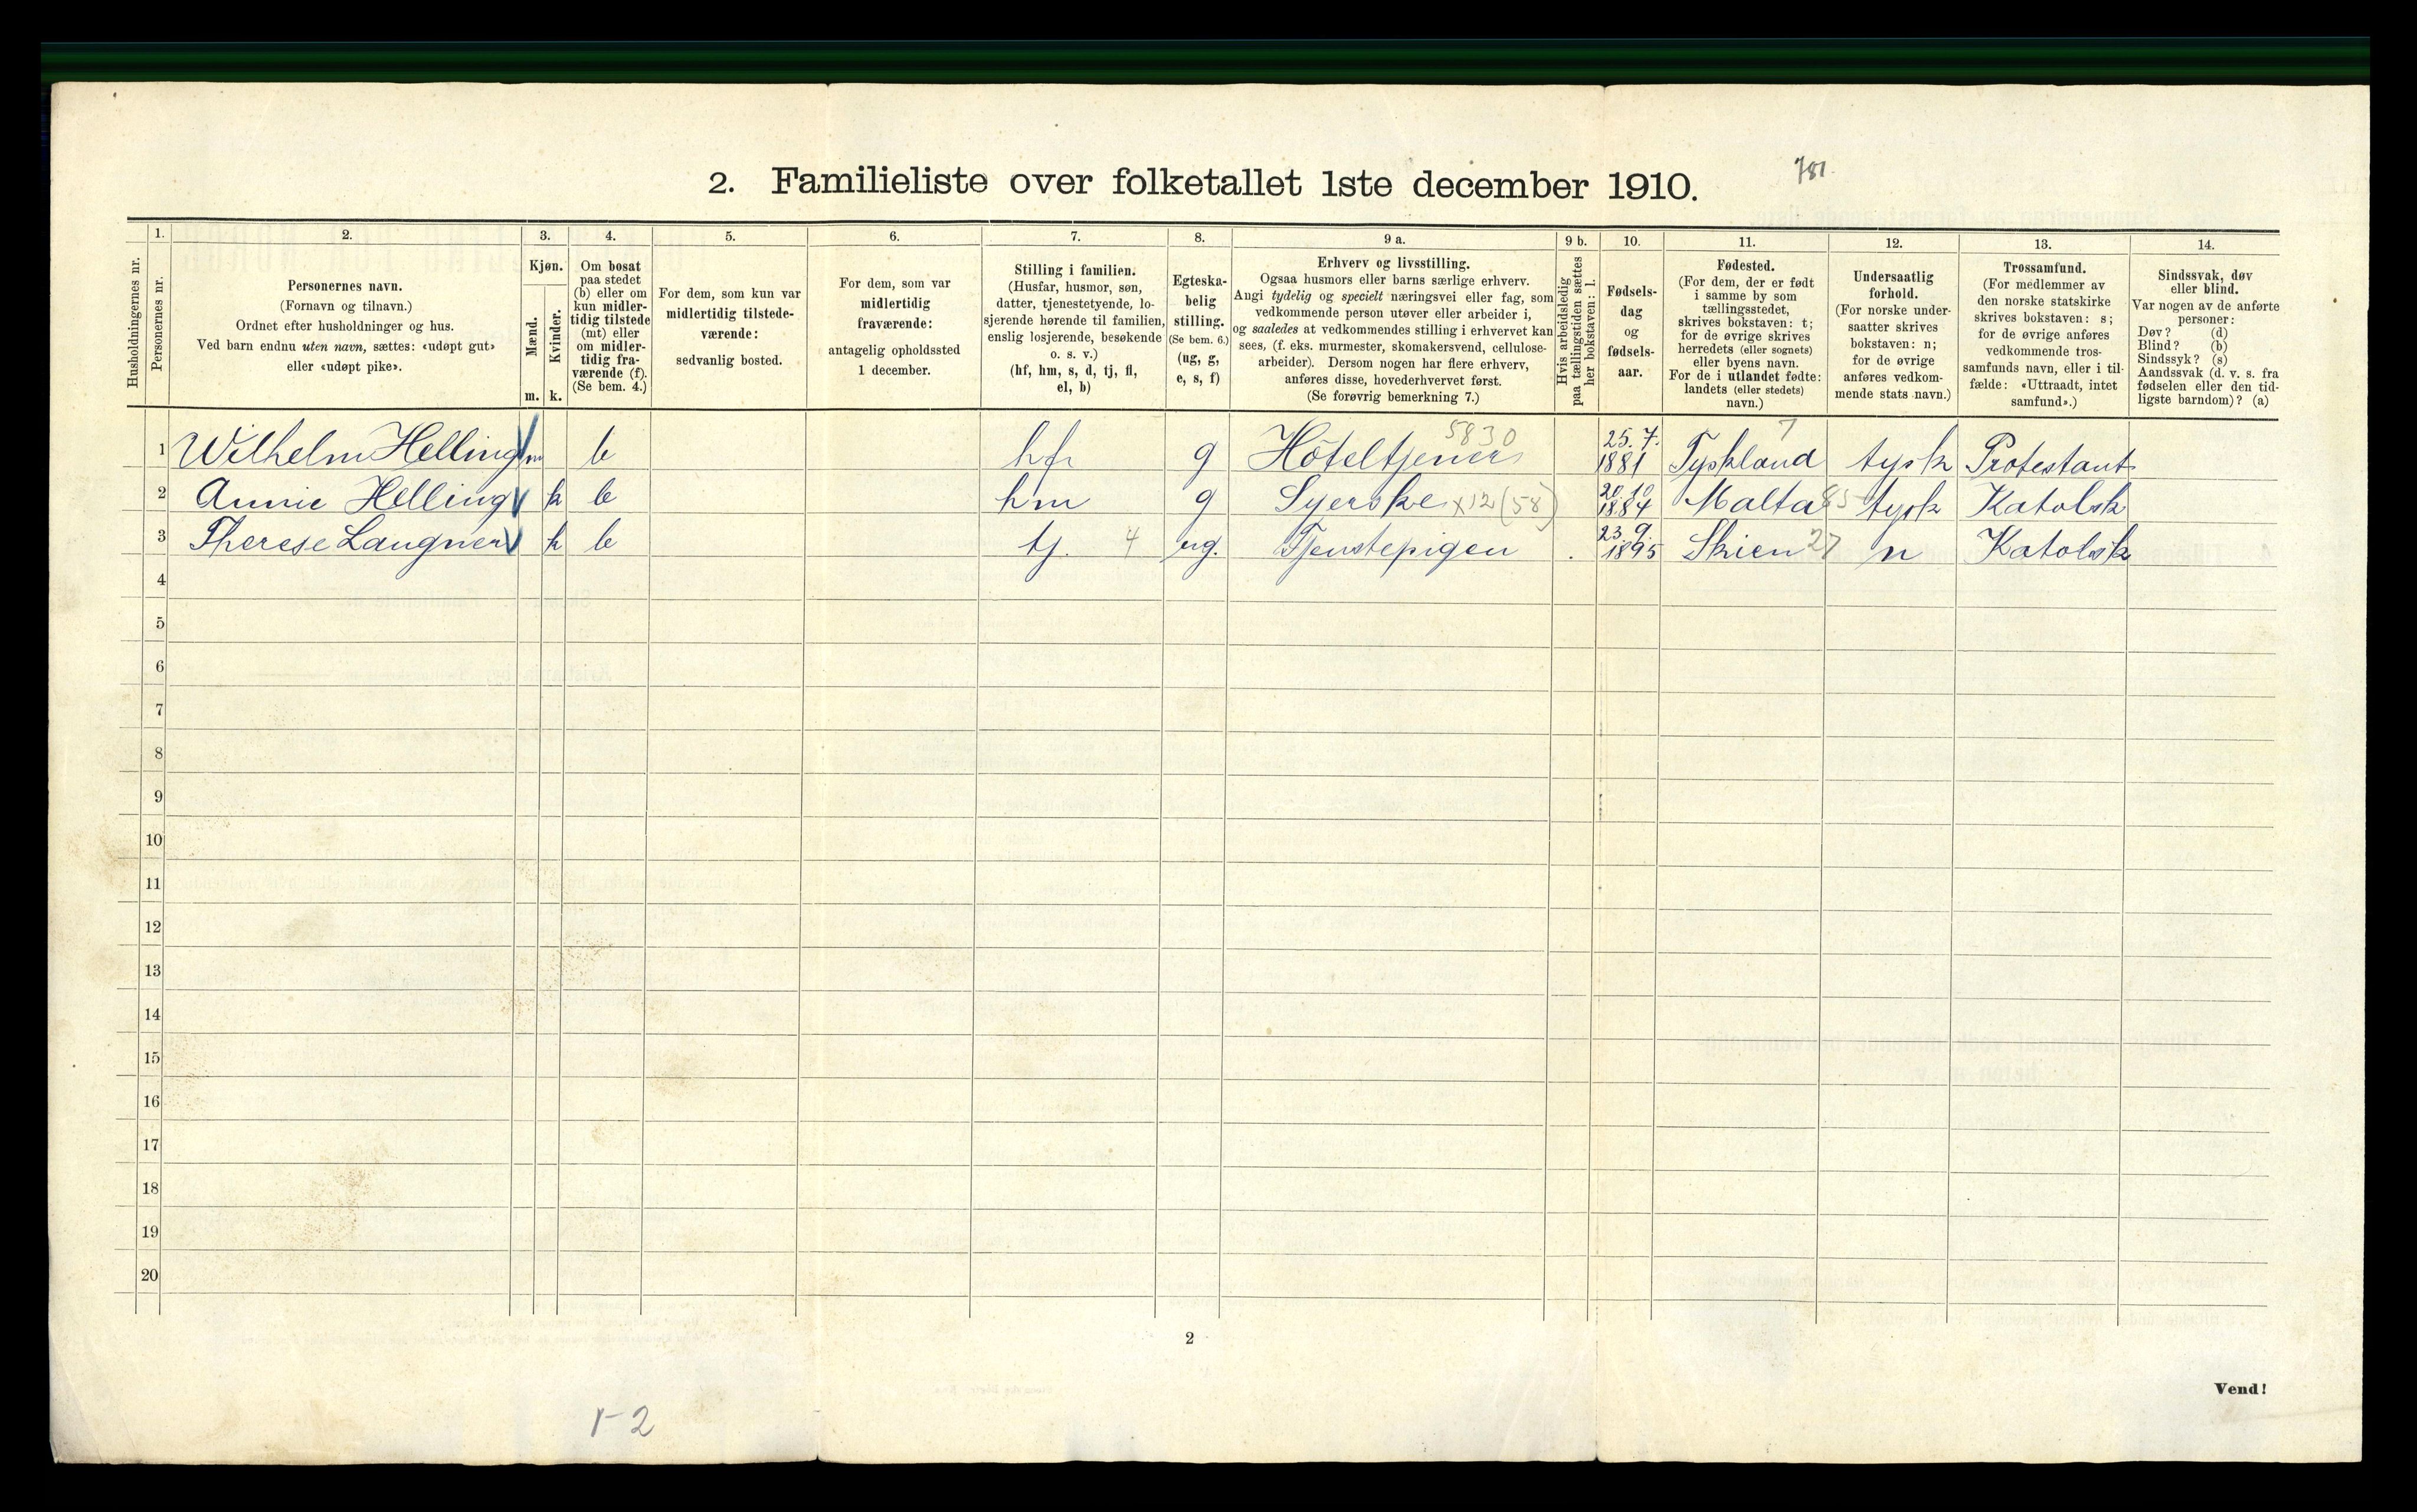 2. Familieliste over folketallet 1ste december 1910.
781.
Husholdningernes nr.
1.
Personernes nr.
2.
Personernes navn.
(Fornavn og tilnavn.)
Ordnet efter husholdninger og hus.
Ved barn endnu uten navn, sættes: «udøpt gut»
eller «udøpt pike».
3.
Kjøn.
Mænd.
m.
Kvinder.
k.
4.
Om bosat
paa stedet
(b) eller om
kun midler-
tidig tilstede
(mt) eller
om midler-
tidig fra-
værende (f).
(Se bem. 4.)
5.
For dem, som kun var
midlertidig tilstede-
værende:
sedvanlig bosted.
6.
For dem, som var
midlertidig
fraværende:
antagelig opholdssted
1 december.
7.
Stilling i familien.
(Husfar, husmor, søn,
datter, tjenestetyende, lo-
sjerende hørende til familien,
enslig losjerende, besøkende
o. s. v.)
(hf, hm, s, d, tj, fl,
el, b)
8.
Egteska-
belig
stilling.
(Se bem. 6.)
(ug, g,
e, s, f)
9 a.
Erhverv og livsstilling.
Ogsaa husmors eller barns særlige erhverv.
Angi tydelig og specielt næringsvei eller fag, som
vedkommende person utøver eller arbeider i,
og saaledes at vedkommendes stilling i erhvervet kan
sees, (f. eks. murmester, skomakersvend, cellulose-
arbeider). Dersom nogen har flere erhverv,
anføres disse, hovederhvervet først.
(Se forøvrig bemerkning 7.)
9 b.
Hvis arbeidsledig
paa tællingstiden sættes
her bokstaven: l.
10.
Fødsels-
dag
og
fødsels-
aar.
11.
Fødested.
(For dem, der er født
i samme by som
tællingsstedet,
skrives bokstaven: t;
for de øvrige skrives
herredets (eller sognets)
eller byens navn.
For de i utlandet fødte:
landets (eller stedets)
navn.)
12.
Undersaatlig
forhold.
(For norske under-
saatter skrives
bokstaven: n;
for de øvrige
anføres vedkom-
mende stats navn.)
13.
Trossamfund.
(For medlemmer av
den norske statskirke
skrives bokstaven: s;
for de øvrige anføres
vedkommende tros-
samfunds navn, eller i til-
fælde: «Uttraadt, intet
samfund».)
14.
Sindssvak, døv
eller blind.
Var nogen av de anførte
personer:
Døv? (d)
Blind? (b)
Sindssyk? (s)
Aandssvak (d. v. s. fra
fødselen eller den tid-
ligste barndom)? (a)
1 Wilhelm Helling m b hf g Hôteltjener 5830 25. 7. 1881 Tyskland 7 tysk Protestant
2 Annie Helling k b hm g Syerske x12 (58) 20.10 1884 Malta 85 tysk Katolsk
3 Therese Laugner k b tj. 4 ug. Tjenstepigen . 23. 9. 1895 Skien 27 n Katolsk
4
5
6
7
8
9
10
11
12
13
14
15
16
17
18
19
20
2
Vend!
1-2